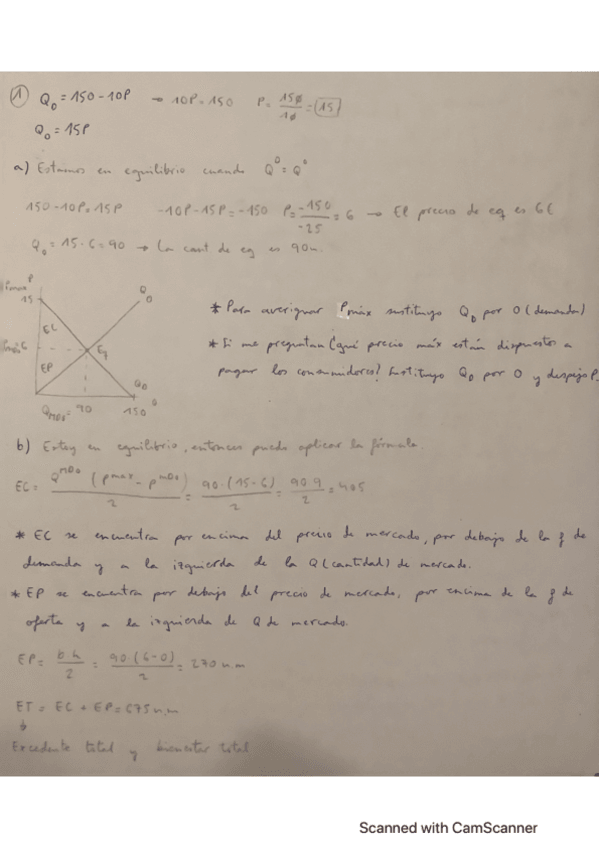 1 Q_D = 150 - 10P → 10P = 150 P = 150/10 = 15
Q_O = 15P
a) Estamos en equilibrio cuando Q^D = Q^O
150 - 10P = 15P -10P - 15P = -150 P = -150/-25 = 6 → El precio de eq es 6€
Q_O = 15 · 6 = 90 → La cant de eq es 90u.
Pmax P
15
Q_O
EC
6
Eq
EP
Q_D
Q
Q_MDO = 90 150
* Para averiguar Pmáx sustituyo Q_D por 0 (demanda)
* Si me preguntan ¿qué precio máx están dispuestos a
pagar los consumidores? Sustituyo Q_D por 0 y despejo P.
b) Estoy en equilibrio, entonces puedo aplicar la fórmula.
EC = Q^MDO (P^max - P^MDO)/2 = 90 · (15 - 6)/2 = 90 · 9/2 = 405
* EC se encuentra por encima del precio de mercado, por debajo de la f de
demanda y a la izquierda de la Q (cantidad) de mercado.
* EP se encuentra por debajo del precio de mercado, por encima de la f de
oferta y a la izquierda de Q de mercado.
EP = b·h/2 = 90 · (6 - 0)/2 = 270 u.m
ET = EC + EP = 675 u.m
Excedente total y bienestar total
Scanned with CamScanner